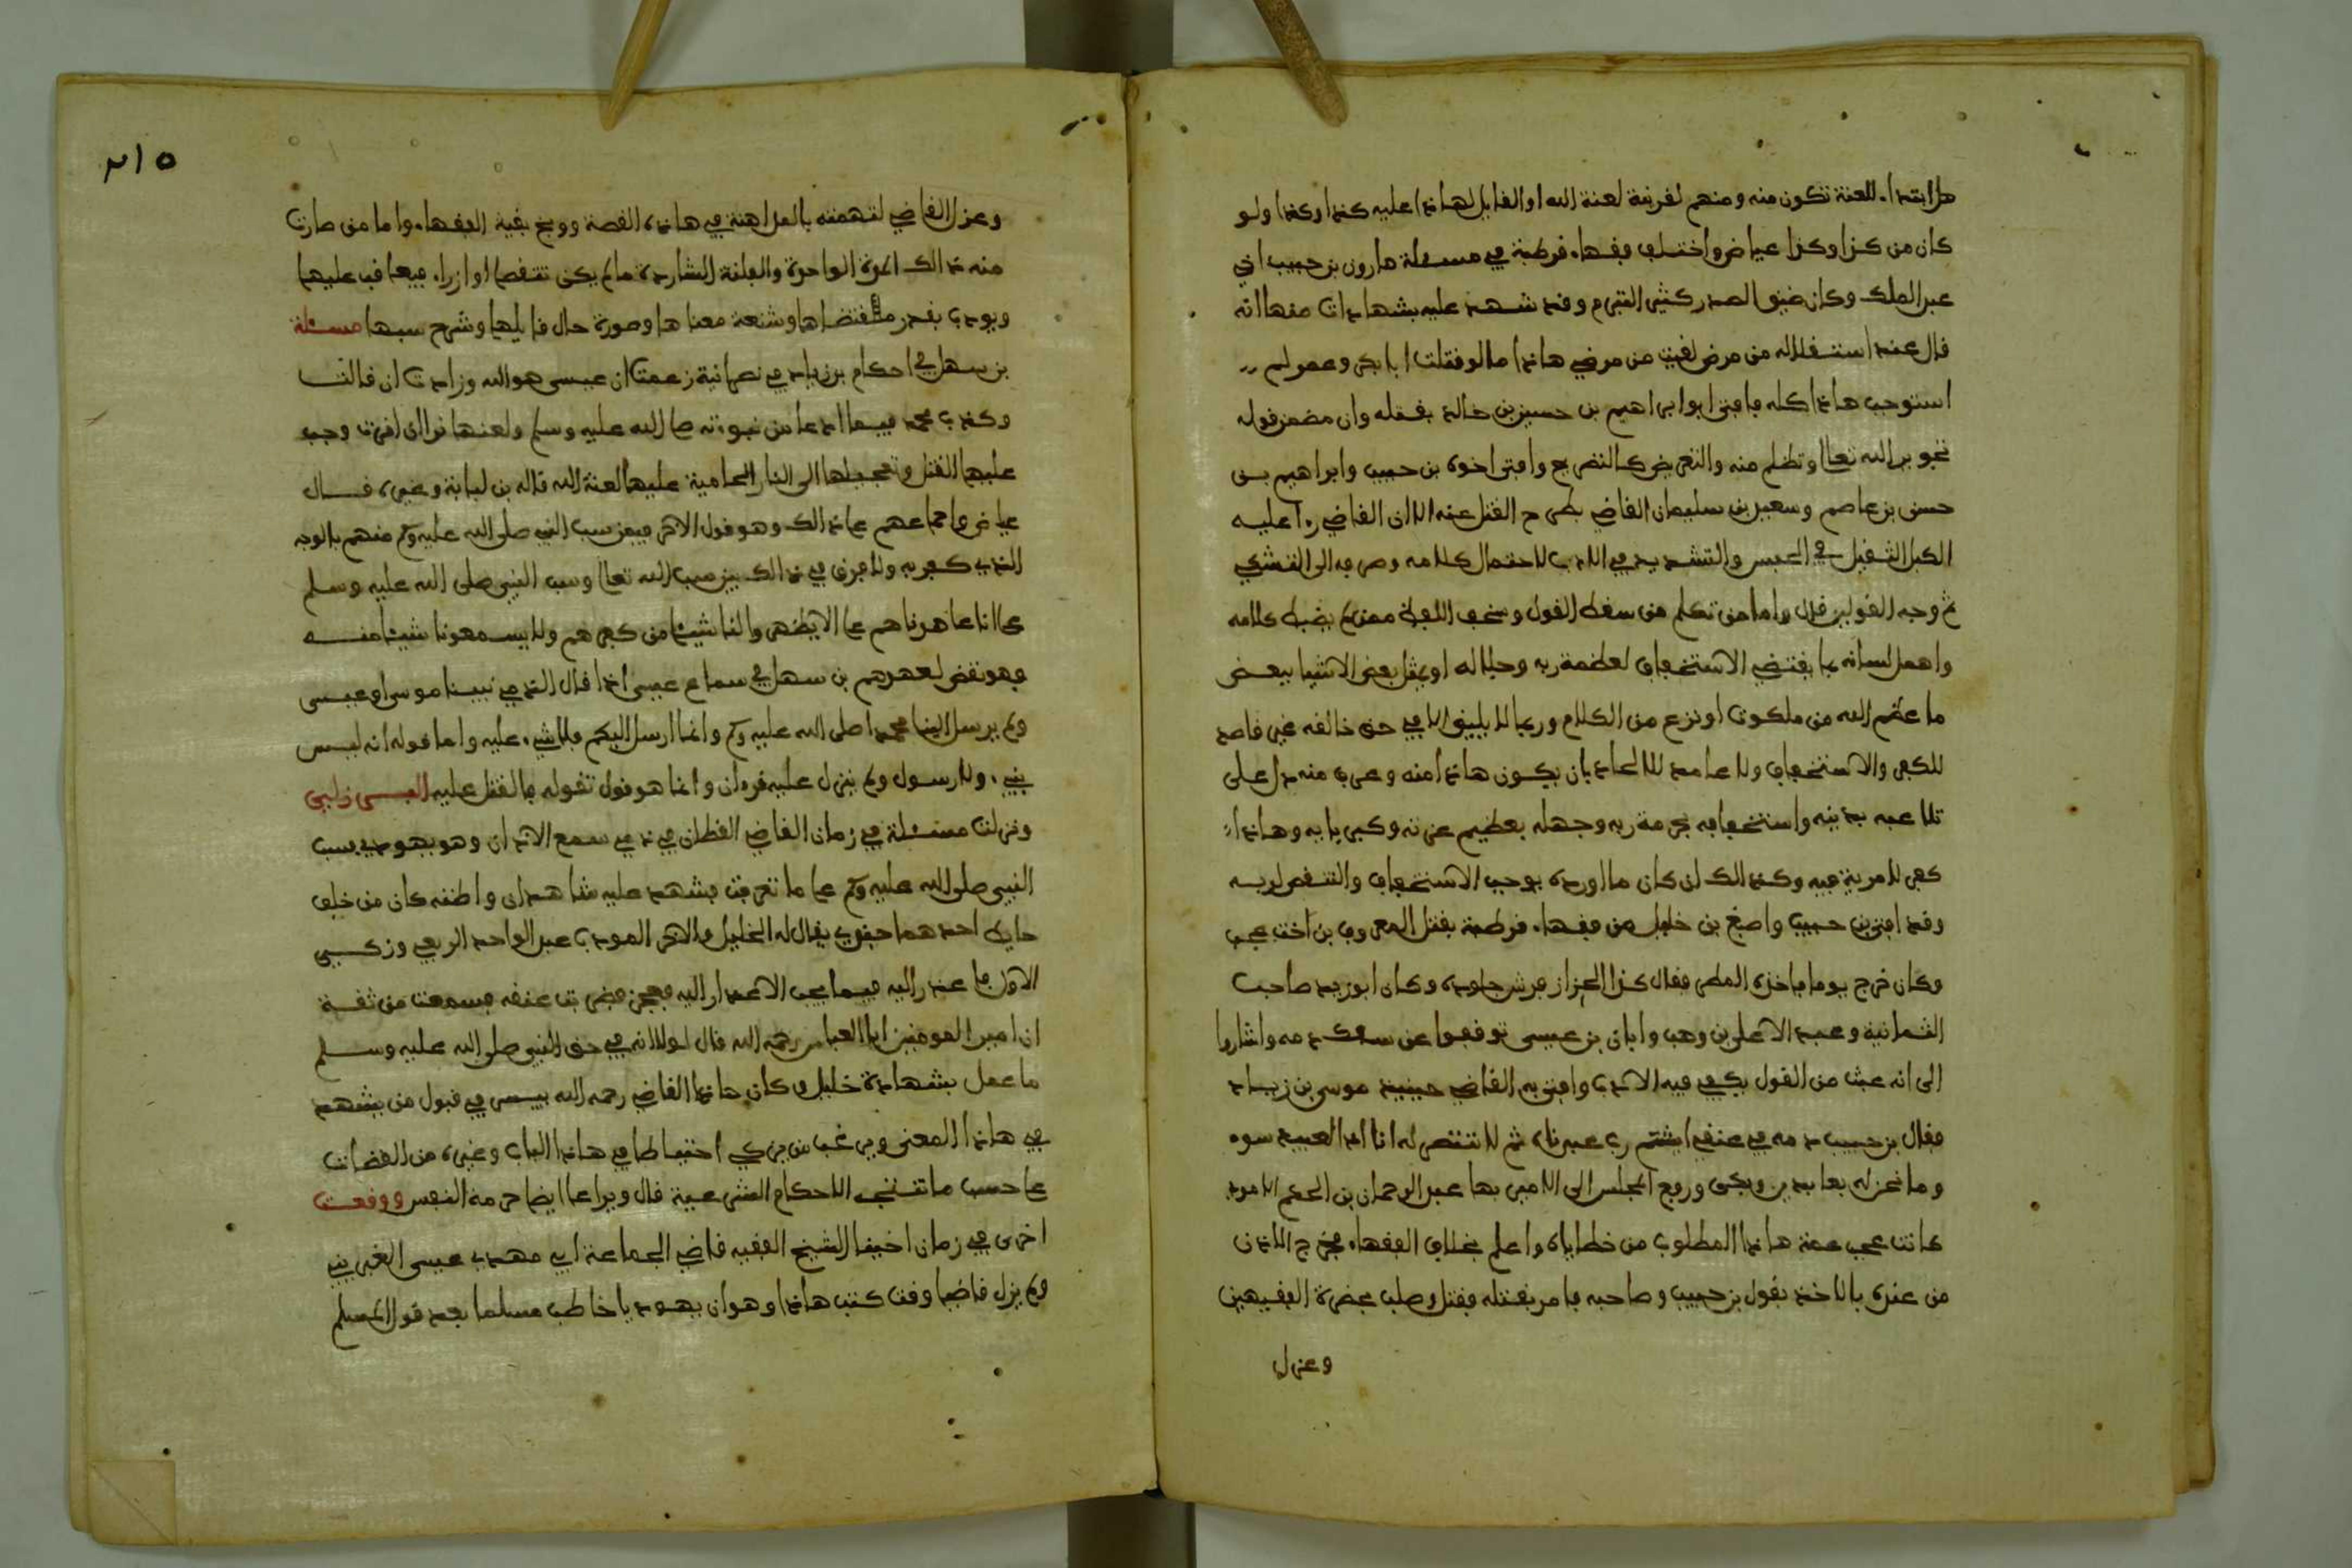 هل ابتداء اللعنة تكون منه ومنهم لقرينة لعنة الله او القايل لهاذا عليه كذا وكذا ولو
كان من كذا وكذا عياض واختلف فقهاء قرطبة في مسئلة هارون بن حبيب اخي
عبد الملك وكان ضيق الصدر كثير التبرم وقد شهد عليه بشهادات منها انه
قال عند استقلاله من مرض لقيت من مرضي هاذا ما لو قتلت ابا بكر وعمر لم
استوجب هاذا كله فافتى ابو ابراهيم بن حسين بن خالد بقتله وان مضمن قوله
تجوير الله تعالى وتظلم منه والتعريض كالتصريح وافتى اخوه بن حبيب وابراهيم بن
حسن بن عاصم وسعيد بن سليمان القاضي بطرح القتل عنه الا ان القاضي رءا عليه
الكبل الثقيل في الحبس والتشديد في الادب لاحتمال كلامه وصرفه الى التشكي
ثم وجه القولين قال واما من تكلم من سقط القول وسخف اللفظ ممن لم يضبط كلامه
واهمل لسانه بما يقتضي الاستخفاف لعظمة ربه وجلاله او يمثل بعض الاشيا ببعض
ما عظم الله من ملكوته او نزع من الكلام وربما لا يليق الا في حق خالقه غير قاصد
للكفر والاستخفاف ولا عامد للالحاد بان يكون هاذا منه وعرف منه دل على
تلاعبه بدينه واستخفافه بحرمة ربه وجهله بعظيم عزته وكبريايه وهاذا
كفر لا مرية فيه وكذالك ان كان ما اورده يوجب الاستخفاف والتنقص لربه
وقد افتى بن حبيب واصبغ بن خليل من فقهاء قرطبة بقتل المعروف بن اخت عجب
وكان خرج يوما فاخذه المطر فقال كذا الخراز يرش جلوده وكان ابو زيد صاحب
الثمانية وعبد الاعلى بن وهب وابان بن عيسى توقفوا عن سفك دمه واشاروا
الى انه عبث من القول يكفي فيه الادب وافتى به القاضي حينيذ موسى بن زياد
فقال بن حبيب دمه في عنقي ايشتم رب عبدناه ثم لا ننتصر له انا اذا لعبيد سوء
وما نحن له بعابدين وبكى ورفع المجلس الى الامير بها عبد الرحمان بن الحكم الاموي
كانت عجب عمة هاذا المطلوب من خطاياه واعلم بخلاف الفقهاء فخرج الاذن
من عنده بالاخذ بقول بن حبيب وصاحبه فامر بقتله فقتل وصلب بحضرة الفقيهين
وعزل
٢١٥
وعزل القاضي لتهمته بالمداهنة في هاذه القصة ووبخ بقية الفقهاء واما من صارت
منه ذالك المرة الواحدة والفلتة الشاردة ما لم يكن تنقصا او ازراء فيعاقب عليها
ويودب بقدر مقتضاها وشنعة معناها وصورة حال قايلها وشرح سببها مسئلة
بن سهل في احكام بن زياد في نصرانية زعمت ان عيسى هو الله وزادت ان قالت
وكذب محمد فيما ادعا من نبوءته صلى الله عليه وسلم ولعنها نرا ان اقرت وجب
عليها القتل وتعجيلها الى النار الحامية عليها لعنة الله قاله بن لبابة وغيره قال
عياض واجماعهم على ذالك وهو قول الاخر فيمن سب النبي صلى الله عليه وسلم منهم بالوجه
الذي كفر به ولا فرق في ذالك بين سب الله تعالى وسب النبي صلى الله عليه وسلم
على انا عاهدناهم على الا يظهروا لنا شيئا من كفرهم ولا يسمعونا شيئا منه
وهو نقض لعهدهم بن سهل في سماع عيسى اذا قال الذمي نبينا موسى او عيسى
ولم يرسل الينا محمدا صلى الله عليه وسلم وانما ارسل اليكم فلا شيء عليه واما قوله انه ليس
بنبيء ولا رسول ولم ينزل عليه قرءان وانما هو قول تقوله فالقتل عليه
ونزلت مسئلة في زمان القاضي القطان في ذمي سمع الاذان وهو يهودي يسب
النبي صلى الله عليه وسلم على ما تعرفت فشهد عليه شاهدان واظنه كان من خلف
حايط احدهما يقال له الخليل والاخر المودب عبد الواحد الربعي وزكي
الاول فاعذر اليه فيما يجب الاعذار اليه فعجز فضربت عنقه فسمعت من ثقة
ان امير المومنين ابا العباس رحمه الله قال لولا انه في حق النبي صلى الله عليه وسلم
ما عمل بشهادة خليل وكان هاذا القاضي رحمه الله ييسر في قبول من يشهد
في هاذا المعنى ويرغب من يزكي احتياطا في هاذا الباب وغيره من القضات
على حسب ما تقتضيه الاحكام الشرعية قال ويراعا ايضا حرمة النفس ووقعت
اخرى في زمان اخينا الشيخ الفقيه قاضي الجماعة ابي مهدي عيسى الغبريني
ولم يزل قاضيا وقت كتب هاذا وهو ان يهوديا خاطب مسلما بعد قول المسلم